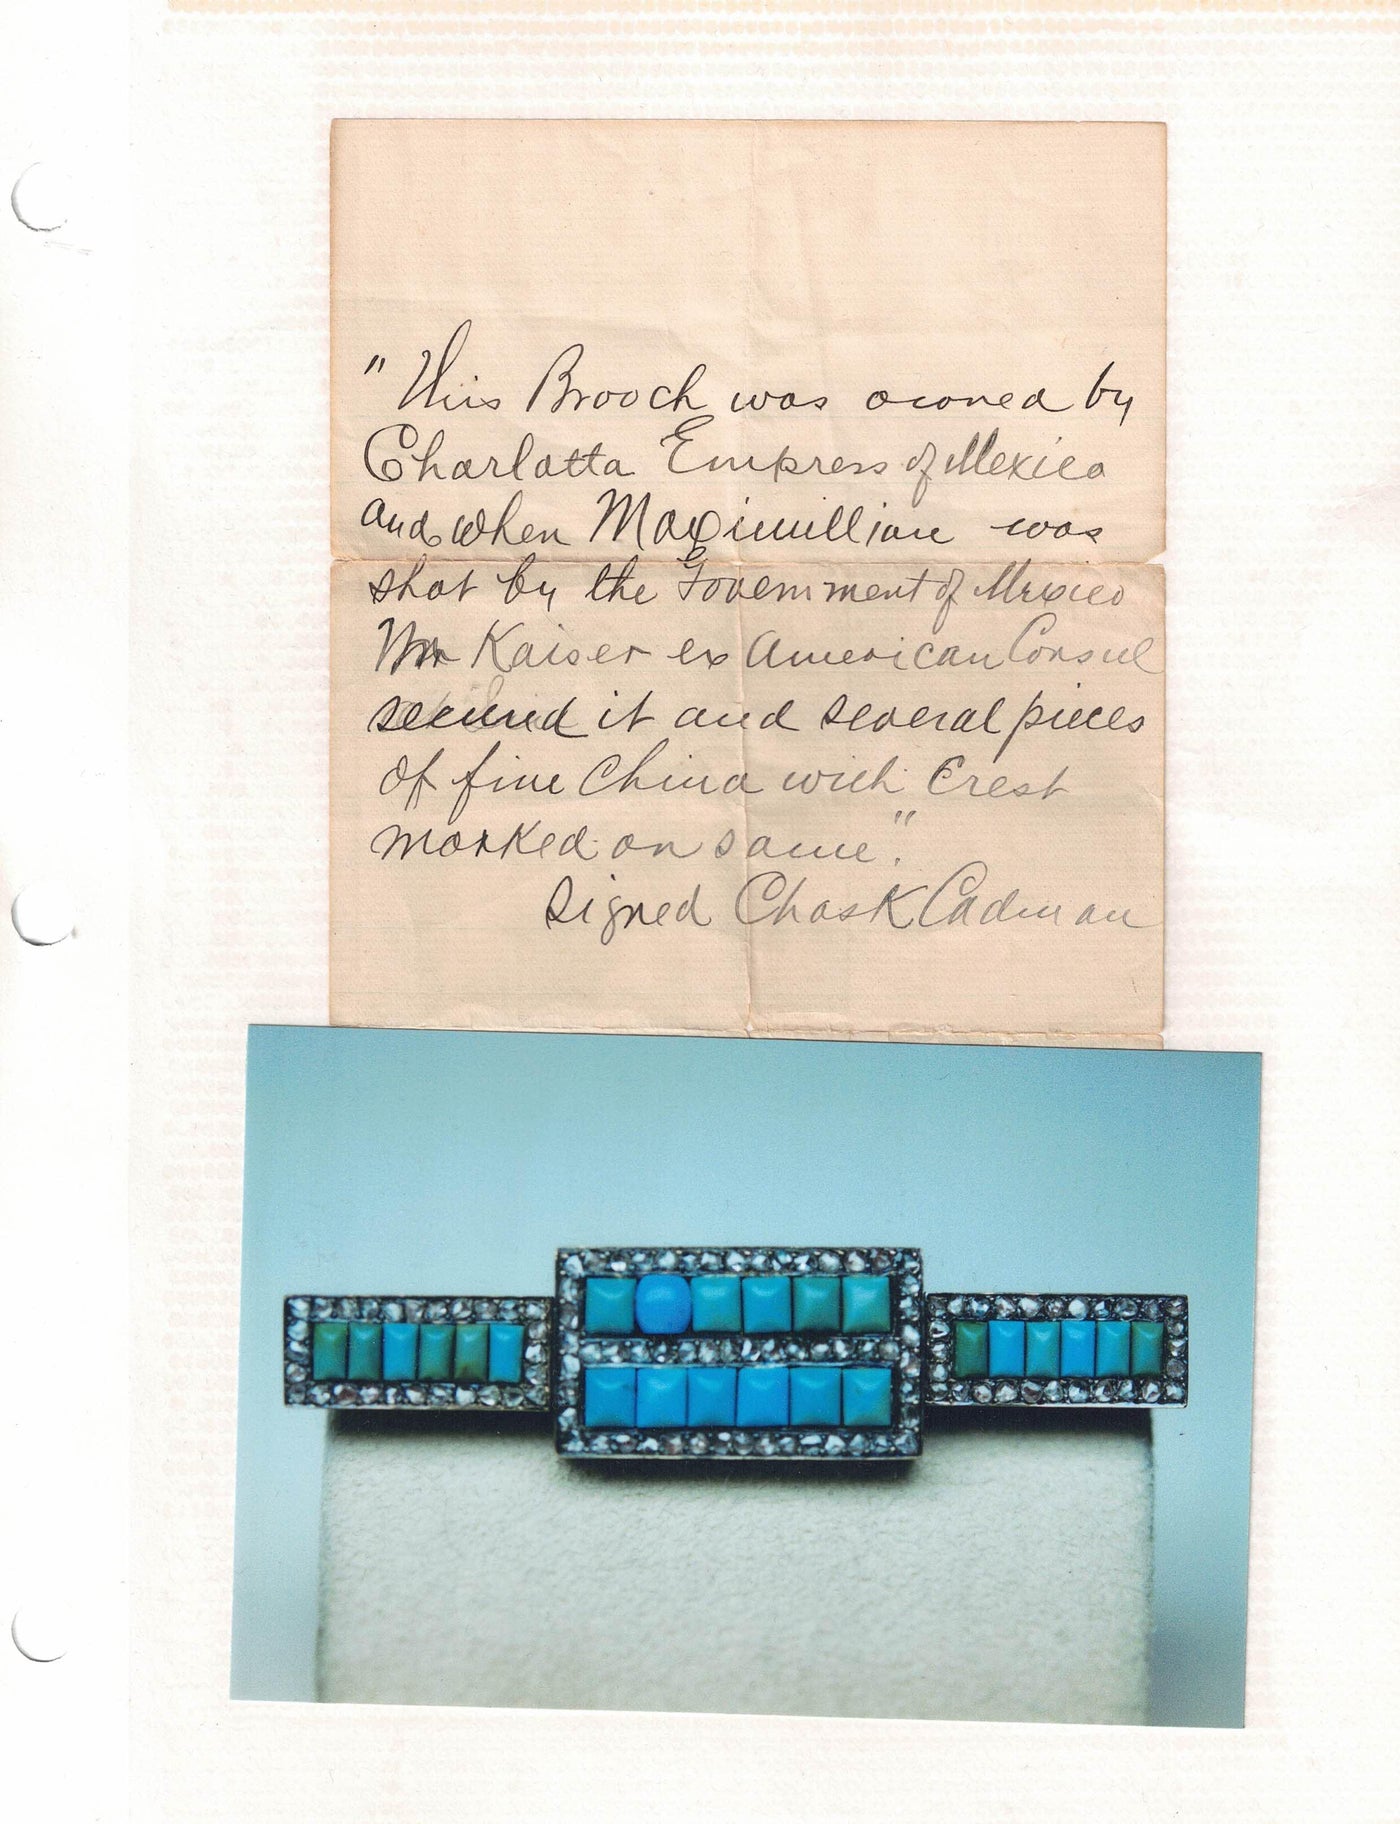 "This Brooch was owned by
Charlotta Empress of Mexico
and when Maximillian was
shot by the Government of Mexico
Wm Kaiser ex American Consul
secured it and several pieces
of fine China with Crest
marked on same".
signed Chas K Cadman